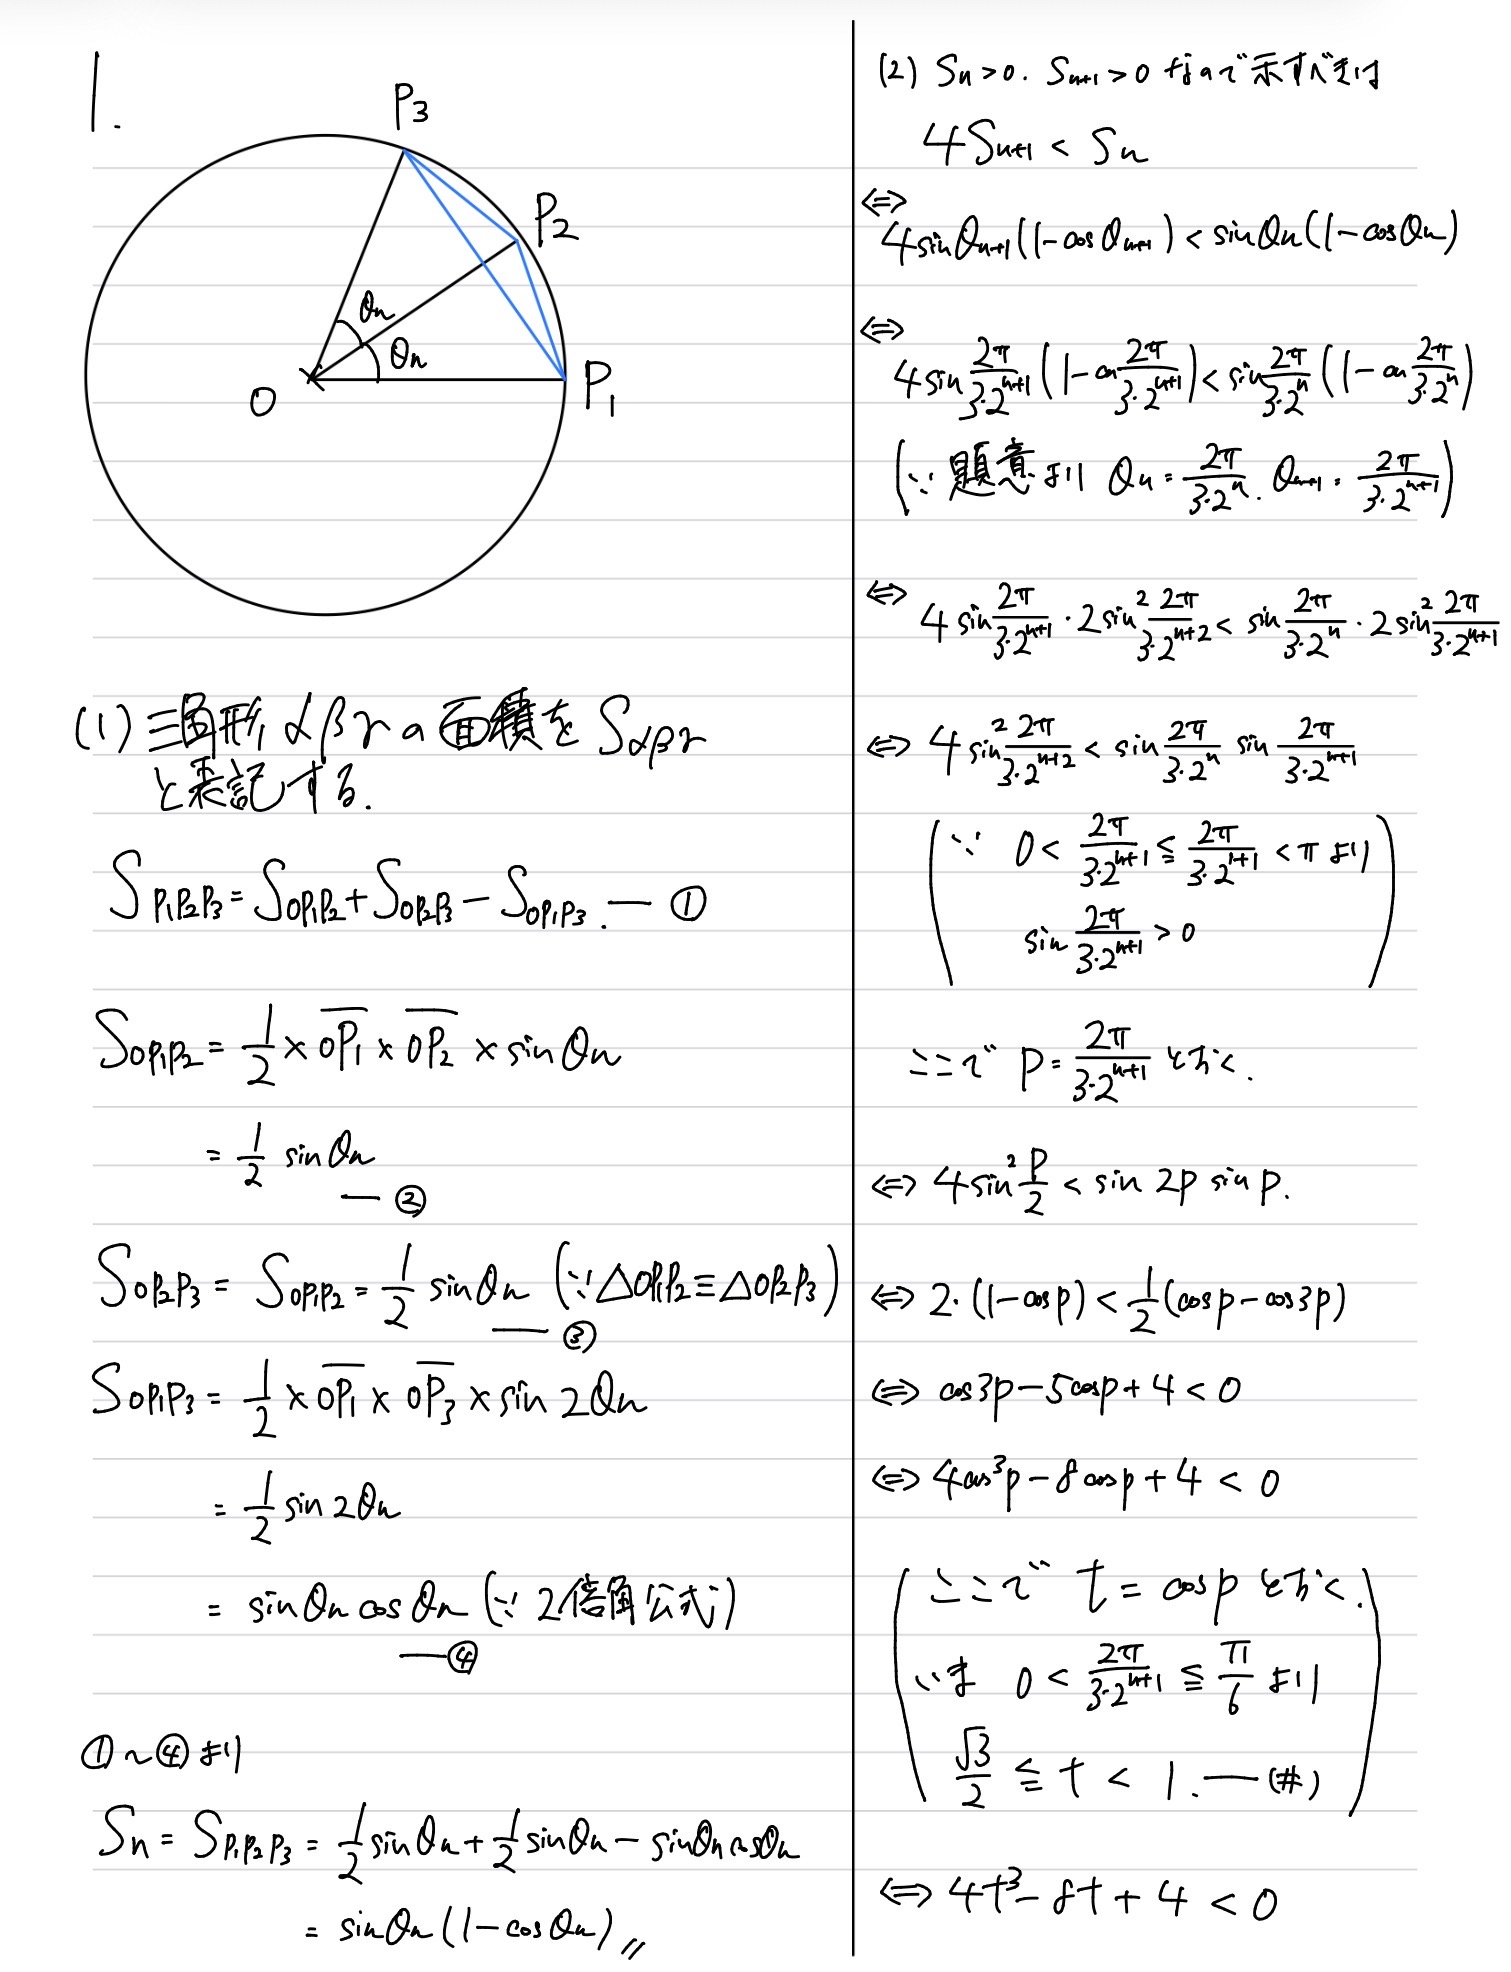 1.
P3
P2
θn
θn
O
P1
(1) 三角形 αβγの面積を Sαβγ
と表記する.
S P1P2P3 = S OP1P2 + S OP2P3 − S OP1P3. — ①
S OP1P2 = 1/2 × OP1 × OP2 × sinθn
= 1/2 sinθn
— ②
S OP2P3 = S OP1P2 = 1/2 sinθn (∵△OP1P2≡△OP2P3)
— ③
S OP1P3 = 1/2 × OP1 × OP3 × sin2θn
= 1/2 sin2θn
= sinθn cosθn (∵ 2倍角公式)
— ④
①〜④より
Sn = S P1P2P3 = 1/2 sinθn + 1/2 sinθn − sinθn cosθn
= sinθn(1−cosθn) 〃
(2) Sn>0. Sn+1>0 なので示すべきは
4Sn+1 < Sn
⇔
4sinθn+1(1−cosθn+1) < sinθn(1−cosθn)
⇔
4sin 2π/3·2^(n+1) (1−cos 2π/3·2^(n+1)) < sin 2π/3·2^n (1−cos 2π/3·2^n)
(∵ 題意より θn = 2π/3·2^n. θn+1 = 2π/3·2^(n+1))
⇔
4 sin 2π/3·2^(n+1) · 2sin² 2π/3·2^(n+2) < sin 2π/3·2^n · 2sin² 2π/3·2^(n+1)
⇔ 4sin² 2π/3·2^(n+2) < sin 2π/3·2^n sin 2π/3·2^(n+1)
(∵ 0 < 2π/3·2^(n+1) ≦ 2π/3·2^(1+1) < π より
sin 2π/3·2^(n+1) > 0)
ここで P = 2π/3·2^(n+1) とおく.
⇔ 4sin² P/2 < sin 2P sin P.
⇔ 2·(1−cosp) < 1/2(cosp−cos3p)
⇔ cos3p−5cosp+4 < 0
⇔ 4cos³p−8cosp+4 < 0
(ここで t = cosp とおく.
いま 0 < 2π/3·2^(n+1) ≦ π/6 より
√3/2 ≦ t < 1. — (#))
⇔ 4t³−8t+4 < 0